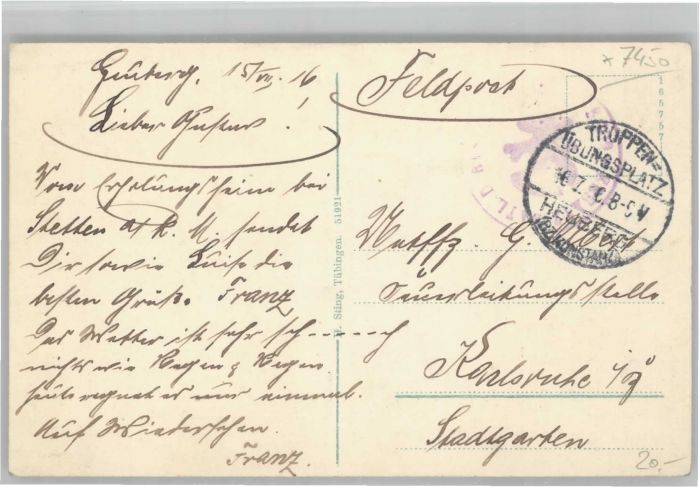 Heuberg, 15/VII. 16
Lieber Gustav!
Vom Erholungsheim bei
Stetten a/ k. M. sendet
Dir sowie Luise die
besten Grüße. Franz
Das Wetter ist sehr sch------ch
nichts wie Regen & Regen.
heute regnet es nur einmal.
Auf Wiedersehen.
Franz.
H. Sting, Tübingen. 51921
Feldpost
x 7450
165757
TRUPPEN-
ÜBUNGSPLATZ
16.7.16. 8-9 V
HEUBERG
(BZ. KONSTANZ)
G.
Karlsruhe i/B
Stadtgarten
20.-